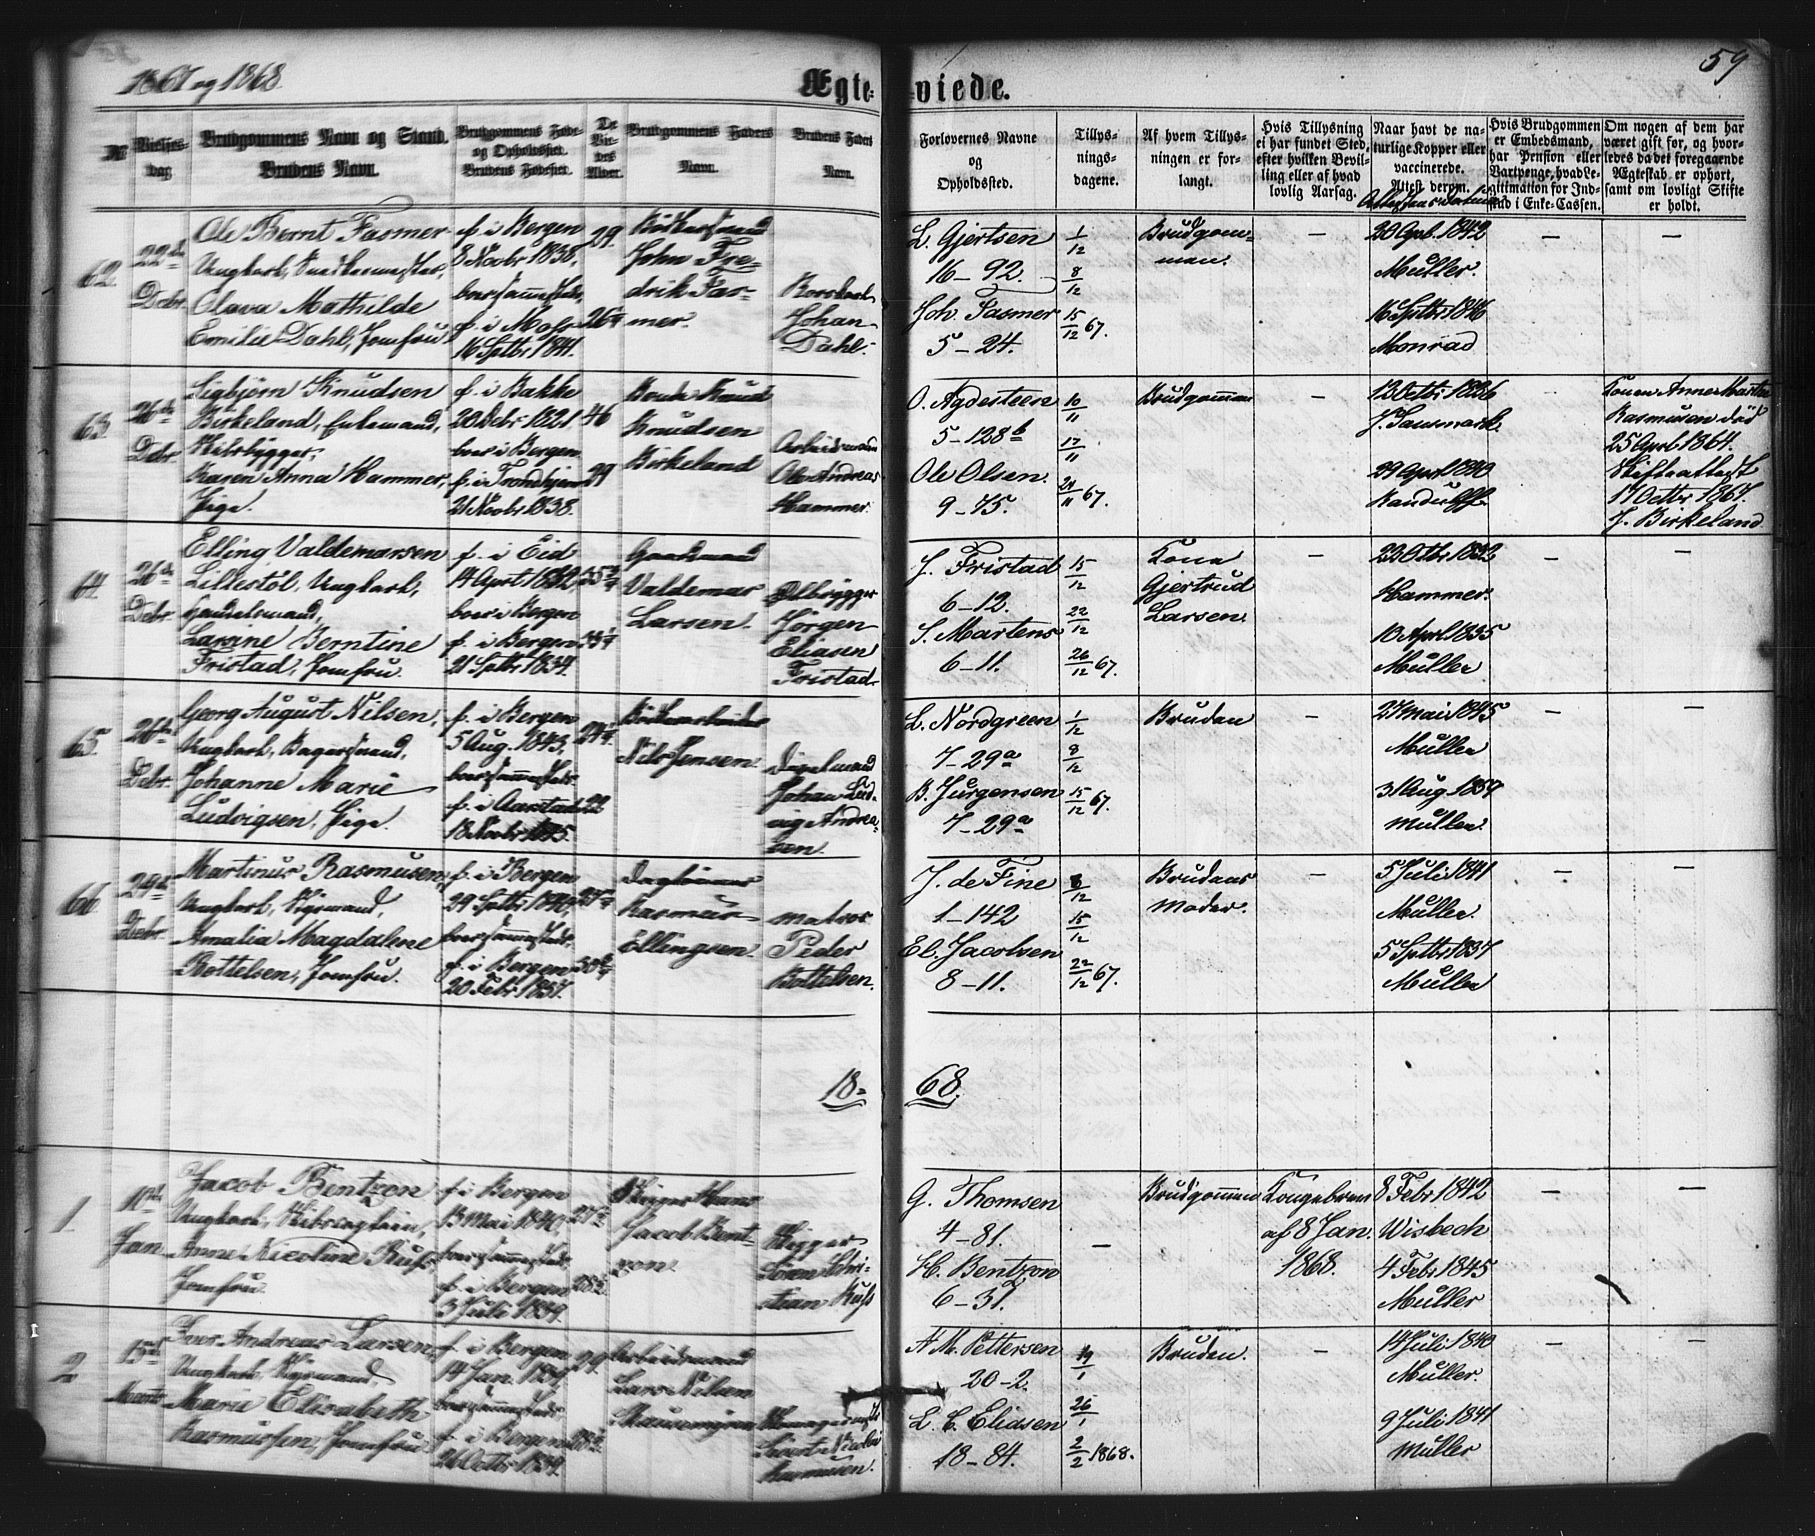 1867 og 1868.
Ægte-
viede.
59
No
Vielses-
dag
Brudgommens Navn og Stand.
Brudens Navn.
BrudgommensFøde-
og Opholdssted.
Brudens Fødested.
De
Vie-
des
Alder.
Brudgommens Faders
Navn.
Brudens Faders
Navn.
Forlovernes Navne
og
Opholdssted.
Tillys-
nings-
dagene.
Af hvem Tillys-
ningen er for-
langt.
Hvis Tillysning
ei har fundet Sted,
efter hvilken Bevil-
ling eller af hvad
lovlig Aarsag.
Naar havt de na-
turlige Kopper eller
vaccinerede.
Attest derom.
Hvis Brudgommen
er Embedsmand,
har Pension eller
Vartpenge, hvad Le-
gitimation for Ind-
skud i Enke-Cassen.
Om nogen af dem har
været gift før, og hvor-
ledes da det foregaaende
Ægteskab er ophørt,
samt om lovligt Skifte
er holdt.
62.
22de
Debr.
Ole Bernt Fasmer
Ungkarl, Snedkermester,
Olava Mathilde
Emilie Dahl, Jomfru
f. i Bergen
8 Novbr 1838,
boer sammesteds,
f. i Moss
16 Septbr 1841.
29
26
Bödkersvend
John Fre-
drik Fas-
mer.
Johan
Dahl.
L. Gjertsen
16-92.
Joh. Fasmer
5-24.
1/12
8/12
15/12 67.
Brudgom-
men.
—
20 Apl. 1842
Müller.
16 Septbr 1846
Monrad
—
—
63.
26de
Debr.
Sigbjörn Knudsen
Birkeland, Enkemand,
Skibsbygger,
Karen Anna Hammer,
Pige.
f. i Bakke
20 Debr 1821
boer i Bergen.
f. i Trondhjem
21 Novbr 1838.
46
29
Bonde Knud
Knudsen
Birkeland
Arbeidsmand
Ole Andreas
Hammer.
O. Agdesteen
5-128 b
Ole Olsen.
9-75.
10/11
17/11
24/11 67.
Brudgommen
—
13 Octbr 1836
J. Sausmark.
29 April 1840
Randulff.
—
Konen Anne Marthe
Rasmusen död
25 April 1864.
Skifteattest
17 Octbr 1867.
J. Birkeland
64.
26de
Debr.
Elling Valdemarsen
Lillestöl, Ungkarl,
Handelsmand,
Larsine Berntine
Fristad, Jomfru.
f. i Eid
14 April 1832,
boer i Bergen
f. i Bergen
21 Septbr 1834.
Gaardmand
Valdemar
Larsen.
Jörgen
Eliasen
Fristad.
J. Fristad
6-12.
S. Martens
6-11.
15/12
22/12
26/12 67.
Kona
Gjertrud
Larsen.
—
23 Otbr 1832
Hammer.
10 April 1835
Müller
—
—
65.
26de
Debr.
Georg August Nilsen,
Ungkarl, Bagersvend,
Johanne Marie
Ludvigsen, Pige.
f. i Bergen
5 Aug. 1843,
boer sammesteds.
f. i Aarstad
18 Novbr 1845.
24
22
Nils Jensen.
Johan Lud-
vig Andrea-
sen.
L. Nordgreen
7-29 a
B. Jürgensen
7-29 a
1/12
8/12
15/12 67.
Bruden
—
27 Mai 1845
Müller
31 Aug. 1859
Müller.
—
—
66.
29de
Debr.
Martinus Rasmusen,
Ungkarl, Vognmand,
Amalia Magdalene
Bottelsen, Jomfru.
f. i Bergen
29 Septbr 1840,
boer sammesteds.
f. i Bergen
20 Febr 1837.
27
30
Rasmus
Ellingsen.
Matros
Peder
Bottelsen.
J. de Fine
1-142
El. Jacobsen
8-11.
8/12
15/12
22/12 67.
Brudens
Moder.
—
5 Juli 1841
Müller.
5 Septbr 1837
Müller
—
—
18-
68.
1.
10de
Jan.
Jacob Bentzon
Ungkarl, Skibscaptein,
Anne Nicoline Russ,
Jomfru.
f. i Bergen
13 Mai 1840,
boer sammesteds,
f. i Bergen
3 Juli 1839.
27
28
Skriver Hans
Jacob Bent-
zon.
Sören Chri-
stian Russ
G. Thomsen
4-81.
H. Bentzon
6-37.
—
Brudgommen
Kongebrev
af 8 Jan.
1868.
8 Febr 1842
Wisbech
4 Febr 1845
Müller
—
—
2
15de
Marts
Iver Andreas Larsen,
Ungkarl, Vognmand,
Marie Elisabeth
Rasmussen, Jomfru.
f. i Bergen
14 Jan. 1839
boer sammesteds.
f. i Bergen
26 Octbr 1839.
29
28
Arbeidsmand
Lars Nilsen
Rasmusen.
A. M. Pettersen
20-2.
L. C. Eliasen
18-84.
19/1
26/1
2/2 1868.
Bruden.
—
14 Juli 1840
Müller.
9 Juli 1841
Müller
—
—